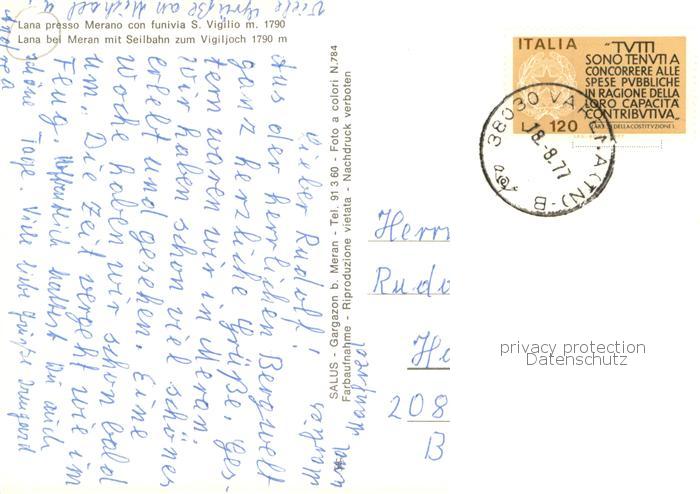 Lana presso Merano con funivia S. Vigilio m. 1790
Lana bei Meran mit Seilbahn zum Vigiljoch 1790 m
Lieber Rudolf!
Aus der herrlichen Bergwelt
ganz herzliche Grüße. Ges-
tern waren wir in Meran.
Wir haben schon viel schönes
erlebt und gesehen. Eine
Woche haben wir schon bald
um. Die Zeit vergeht wie im
Feug. Hoffentlich hattest Du auch
schöne Tage. Viele liebe Grüße
und Manfred
Viele Grüße an Michael
SALUS - Gargazon b. Meran - Tel. 91 3 60 - Foto a colori N.784
Farbaufnahme - Riproduzione vietata - Nachdruck verboten
ITALIA
"TVTTI
SONO TENVTI A
CONCORRERE ALLE
SPESE PVBBLICHE
IN RAGIONE DELLA
LORO CAPACITA'
CONTRIBVTIVA."
L. 120
DELLA COSTITVZIONE
38030
(TN)
18.8.77
B
Herrn
Rudo
He
208
B
privacy protection
Datenschutz